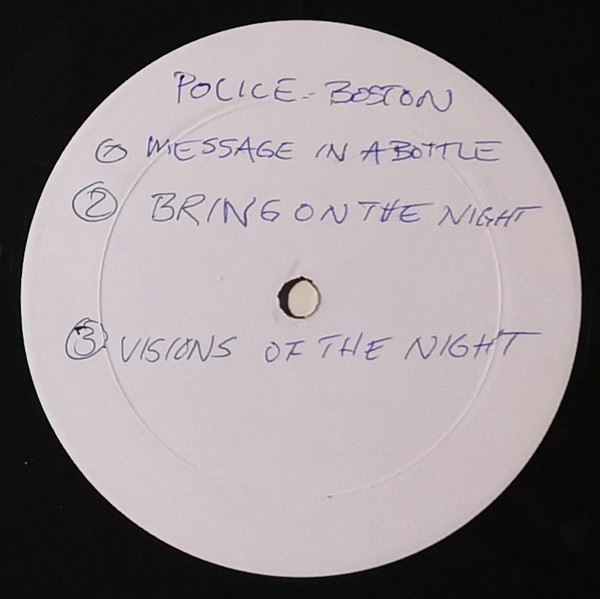 POLICE - BOSTON
① MESSAGE IN A BOTTLE
② BRING ON THE NIGHT
③ VISIONS OF THE NIGHT